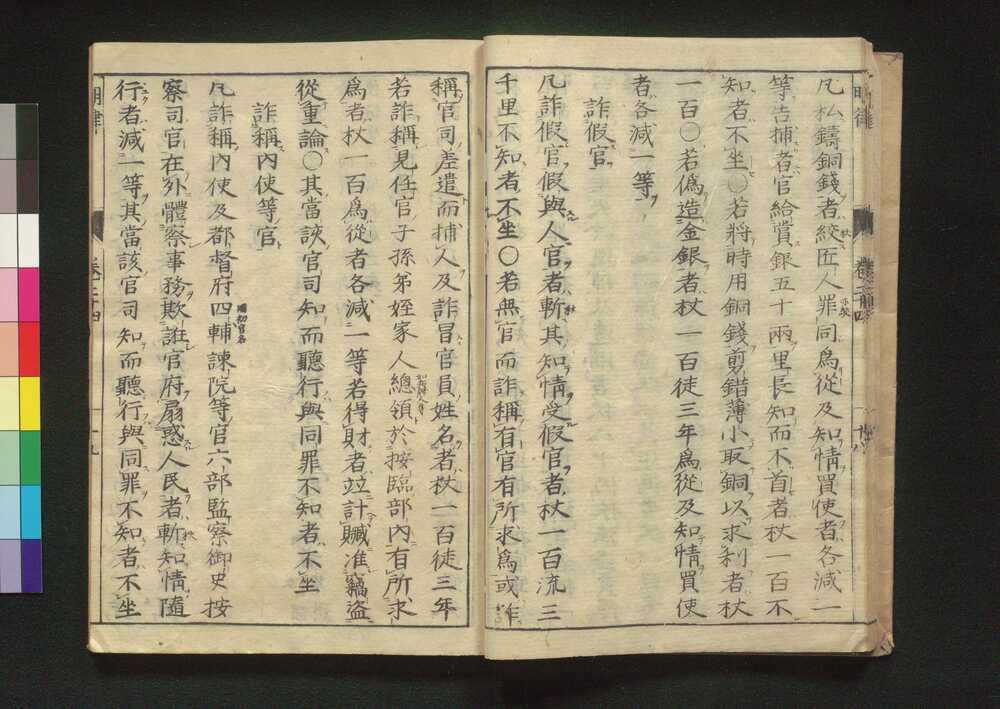 凡私鑄銅錢者絞匠人罪同爲從及知情買使者各減一
等告捕者官給賞銀五十兩里長知而不首者杖一百不
知者不坐○若將時用銅錢剪錯薄小取銅以求利者杖
一百○若僞造金銀者杖一百徒三年爲從及知情買使
者各減一等
詐假官
凡詐假官假與人官者斬其知情受假官者杖一百流三
千里不知者不坐○若無官而詐稱有官有所求爲或詐
卷二十四
十八
稱官司差遣而捕人及詐冒官員姓名者杖一百徒三年
若詐稱見任官子孫弟姪家人總領於按臨部內有所求
爲者杖一百爲從者各減一等若得財者竝計贓准竊盜
從重論○其當該官司知而聽行與同罪不知者不坐
詐稱內使等官
凡詐稱內使及都督府四輔諫院等官六部監察御史按
察司官在外體察事務欺誑官府扇惑人民者斬知情隨
行者減一等其當該官司知而聽行與同罪不知者不坐
明律
卷二十四
十九